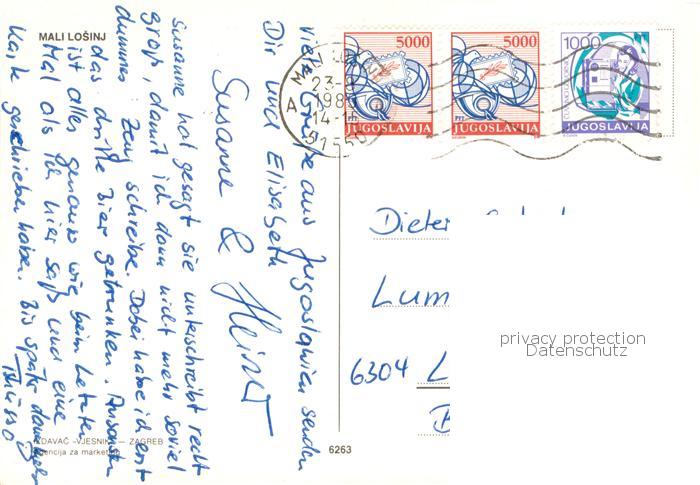 MALI LOŠINJ
viele Grüße aus Jugoslawien senden
Dir und Elisabeth
Susanne & Heinz
Susanne hat gesagt sie unterschreibt recht
groß, damit ich dann nicht mehr soviel
dummes Zeug schreibe. Dabei habe ich erst
das dritte Bier getrunken. Ansonsten
ist alles genauso wie beim letzten
Mal als ich hier saß und eine
Karte geschrieben habe. Bis später dann
Tschüsso
5000
JUGOSLAVIJA
5000
JUGOSLAVIJA
1000
JUGOSLAVIJA
23-
198
14-1
51550
A
Dieter
Lum
6304 L
privacy protection
Datenschutz
IZDAVAČ »VJESNIK« — ZAGREB
agencija za marketing
6263